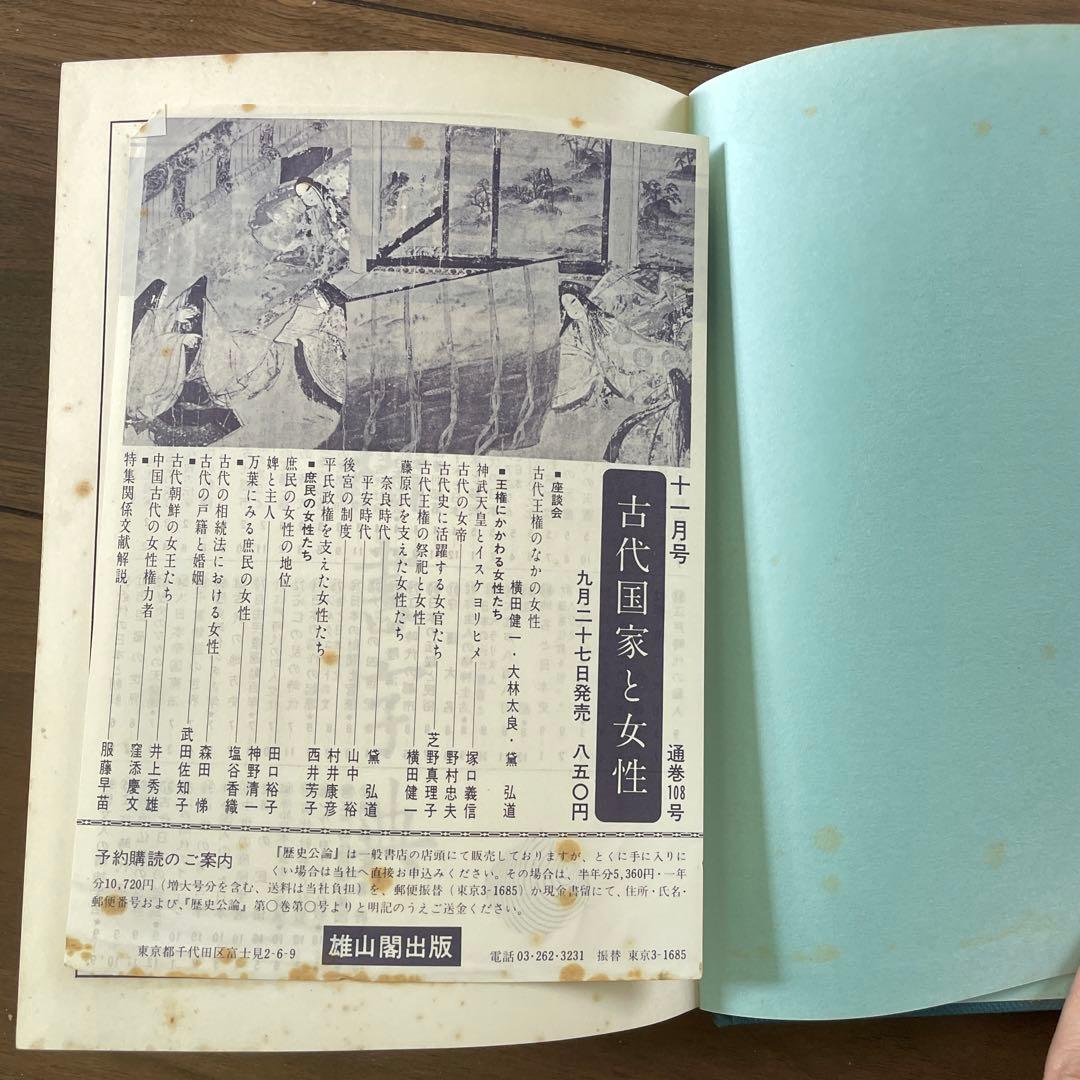 十一月号
通巻108号
古代国家と女性
九月二十七日発売 八五〇円
■座談会
古代王権のなかの女性
横田健一・大林太良・黛 弘道
■王権にかかわる女性たち
神武天皇とイスケヨリヒメ 塚口義信
古代の女帝 野村忠夫
古代史に活躍する女官たち 芝野真理子
古代王権の祭祀と女性 横田健一
藤原氏を支えた女性たち
奈良時代 黛 弘道
平安時代 山中 裕
後宮の制度 村井康彦
平氏政権を支えた女性たち 西井芳子
■庶民の女性たち
庶民の女性の地位 田口裕子
婢と主人 神野清一
万葉にみる庶民の女性 塩谷香織
■
古代の相続法における女性 森田 悌
古代の戸籍と婚姻 武田佐知子
■
古代朝鮮の女王たち 井上秀雄
中国古代の女性権力者 窪添慶文
■
特集関係文献解説 服藤早苗
予約購読のご案内
『歴史公論』は一般書店の店頭にて販売しておりますが、とくに手に入りに
くい場合は当社へ直接お申込みください。その場合は、半年分5,360円・一年
分10,720円（増大号分を含む、送料は当社負担）を、郵便振替（東京3-1685）か現金書留にて、住所・氏名・
郵便番号および、『歴史公論』第〇巻第〇号よりと明記のうえご送金ください。
東京都千代田区富士見2-6-9
雄山閣出版
電話03・262・3231 振替 東京3-1685